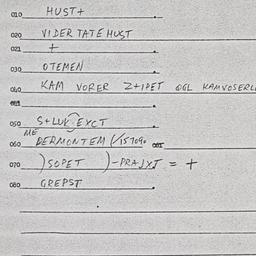 010 HUST+
020 VIDER TATE HUST
021 +
030 OTEMEN
040 KAM VORER Z+IPET OGL KAMVOSERL
050 S+LUK EXCT
ME
060 DERMONTEM (/15709.
070 )SOPET )-PRAJXT = +
080 GREPST